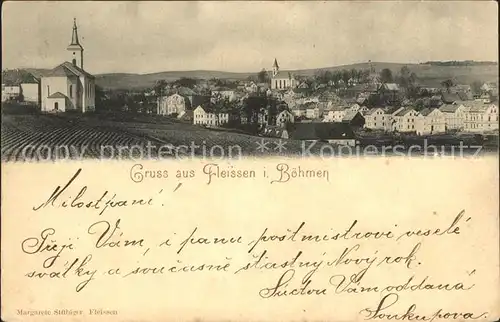 Gruss aus Fleissen i. Böhmen
Milostpaní!
Přeji Vám, i panu poštmistrovi veselé
svátky a současně šťastný Nový rok.
S úctou Vám oddaná
Soukupova.
Margarete Stübiger Fleissen
www.centropohlednice.cz